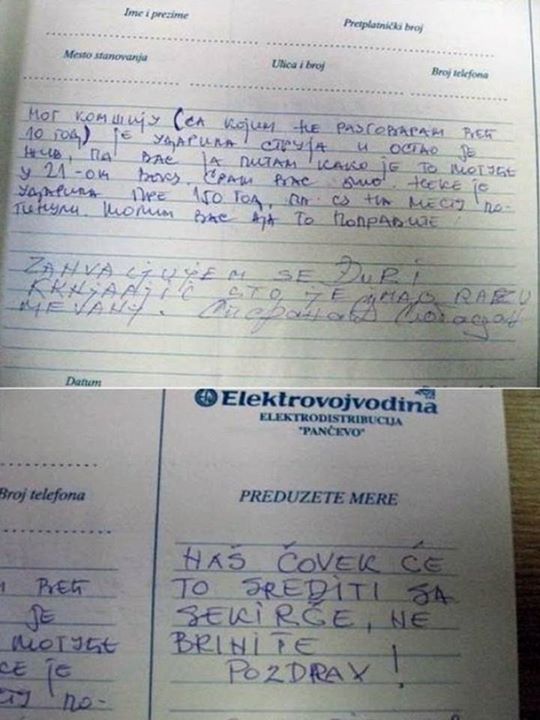 Ime i prezime Pretplatnički broj
Mesto stanovanja Ulica i broj Broj telefona
МОГ КОМШИЈУ (СА КОЈИМ НЕ РАЗГОВАРАМ ВЕЋ
10 ГОД) ЈЕ УДАРИЛА СТРУЈА И ОСТАО ЈЕ
ЖИВ, ПА ВАС ЈА ПИТАМ КАКО ЈЕ ТО МОГУЋЕ
У 21-ОМ ВЕКУ. СРАМ ВАС БИЛО. НЕКЕ ЈЕ
УДАРИЛА ПРЕ 150 ГОД, ПА СУ НА МЕСТУ ПО-
ГИНУЛИ. МОЛИМ ВАС ДА ТО ПОПРАВИТЕ
ZAHVALJUJEM SE ĐURI
STO JE IMAO RAZU
MEVANJ.
Datum
Elektrovojvodina
ELEKTRODISTRIBUCIJA
"PANČEVO"
Broj telefona
PREDUZETE MERE
NAŠ ČOVEK ĆE
TO SREDITI SA
SEKIRČE, NE
BRINITE
POZDRAV!
ВЕЋ
ЈЕ
МОГУЋЕ
КЕ ЈЕ
ПО-